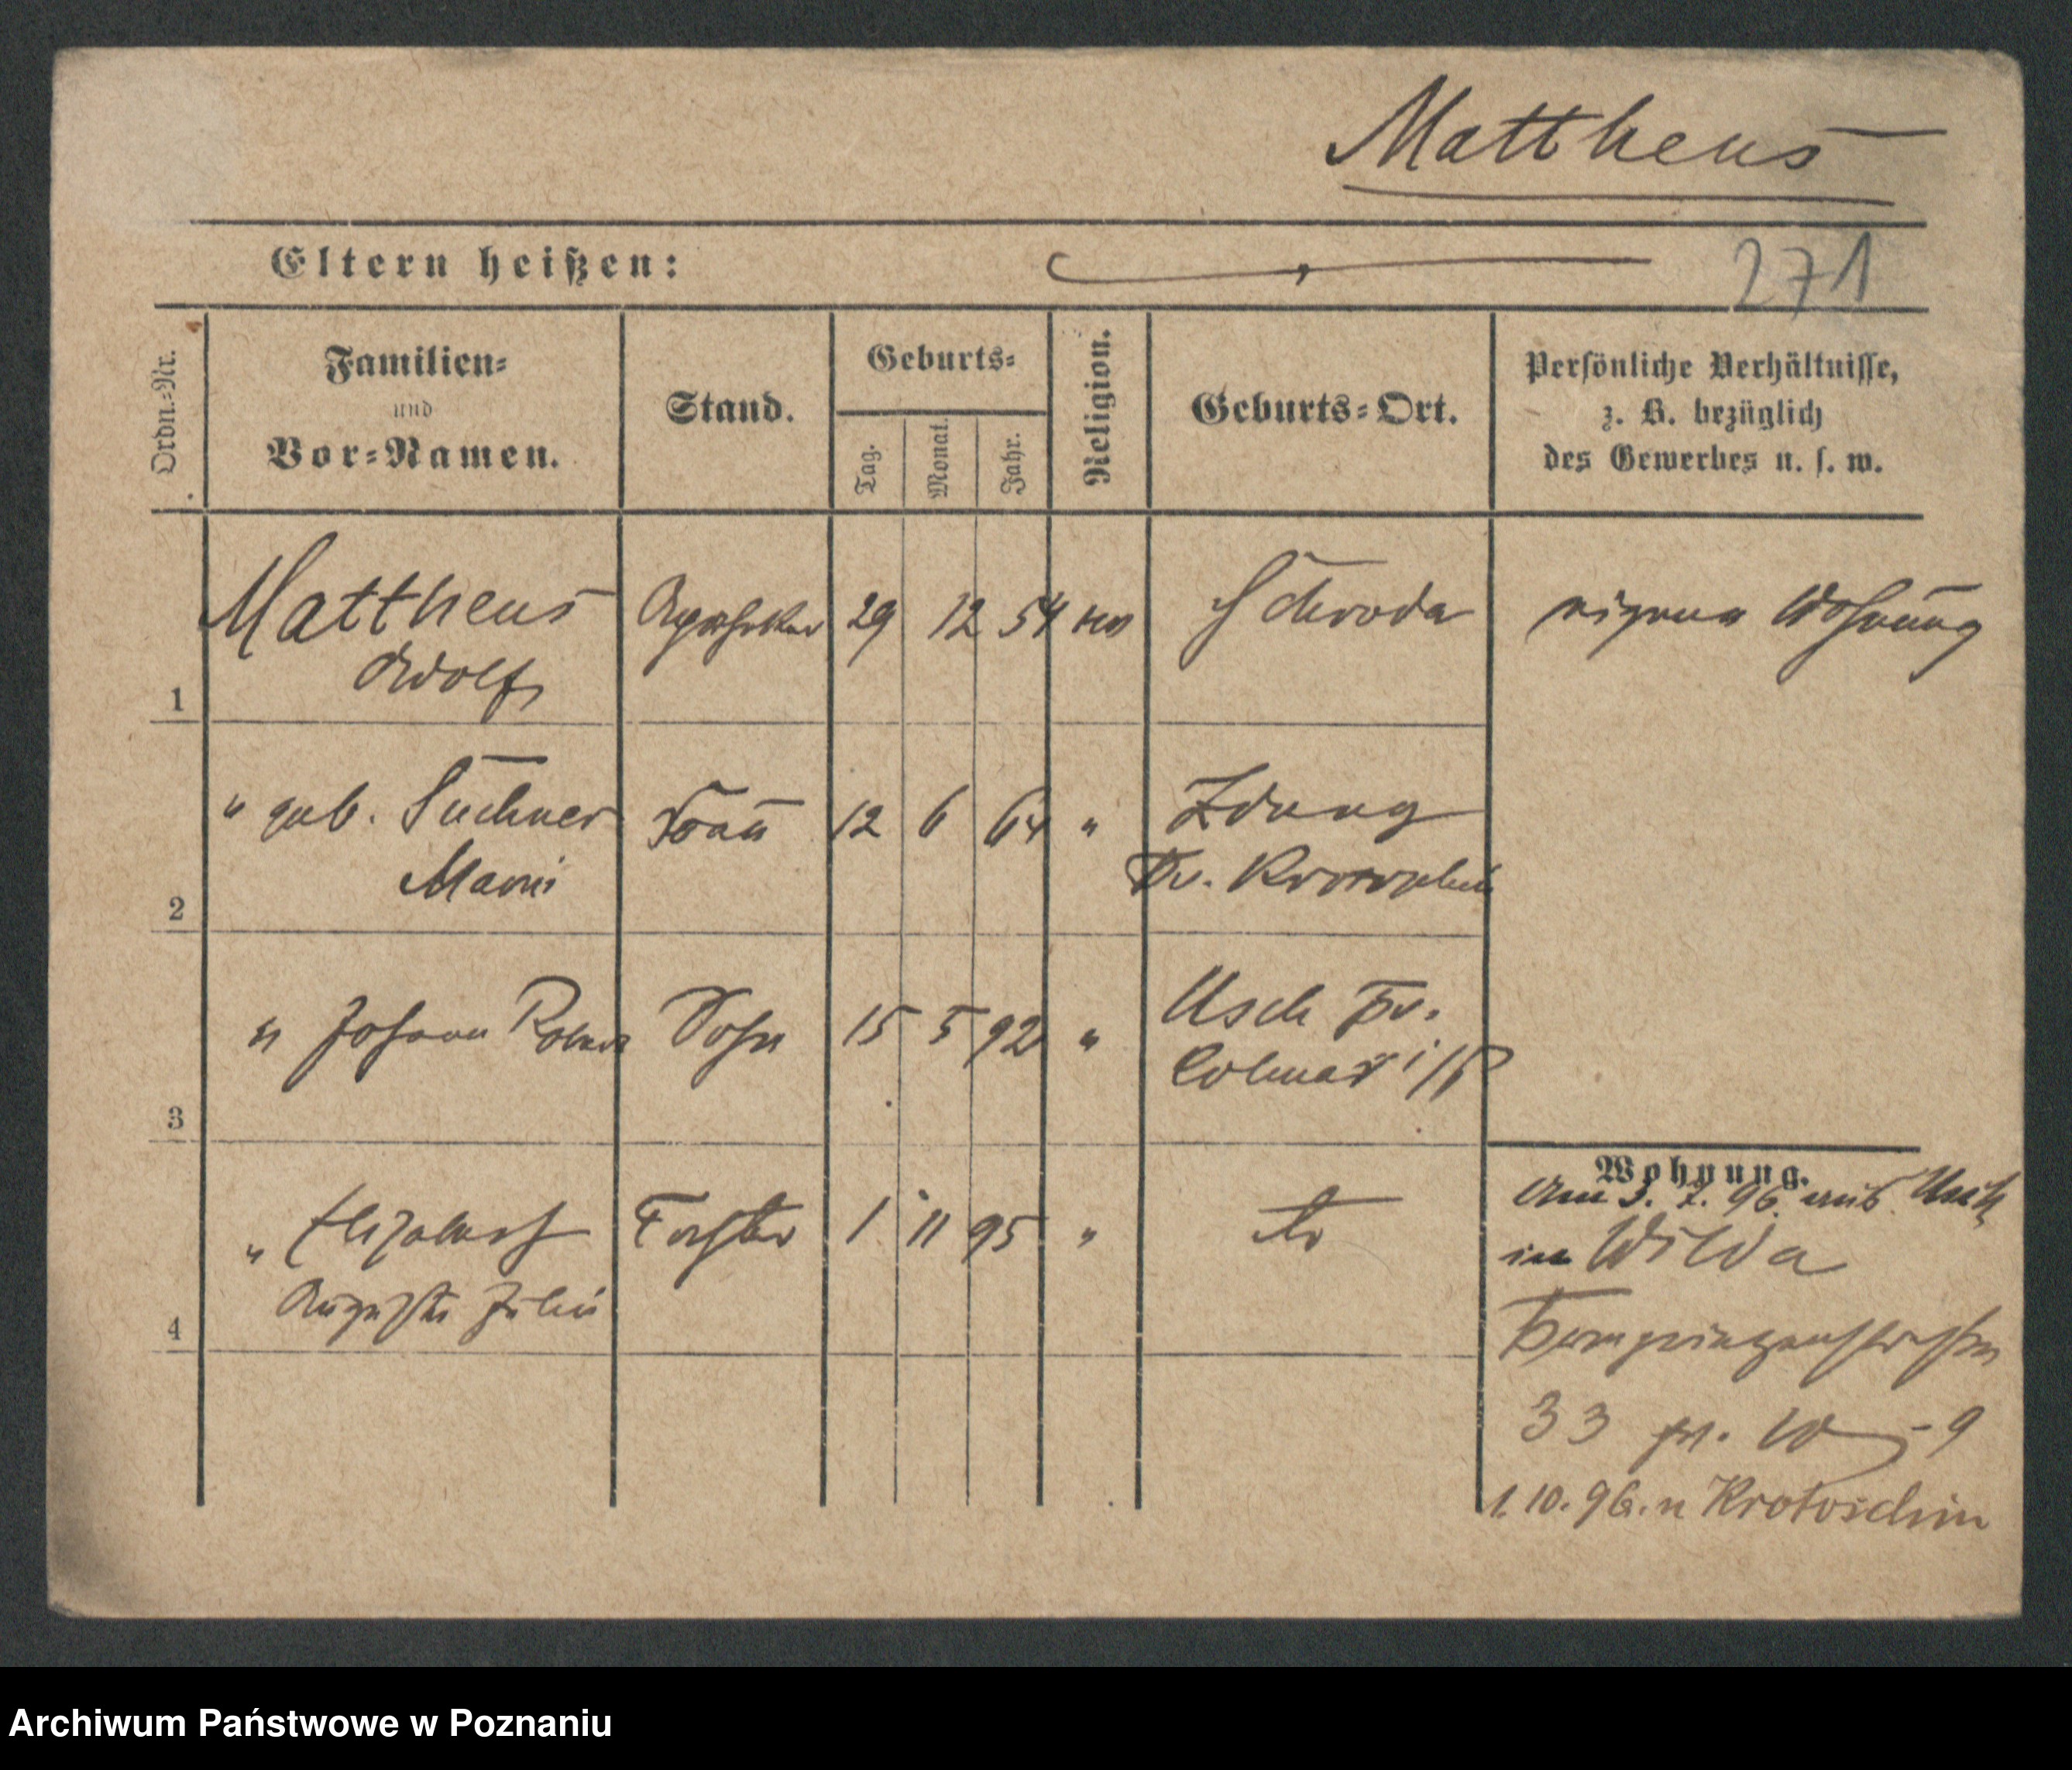 Mattheus
Eltern heißen:
271
Ordn.-Nr.
Familien-
und
Vor-Namen.
Stand.
Geburts-
Tag.
Monat.
Jahr.
Religion.
Geburts-Ort.
Persönliche Verhältnisse,
z. B. bezüglich
des Gewerbes u. s. w.
1 Mattheus Apotheker 29 12 54 ev Schroda eigene Wohnung
Adolf
2 " geb. Suchner Frau 12 6 64 " Zduny
Marie Kr. Krotoschin
3 " Johann Sohn 15 5 92 " Usch Kr.
Colmar i/P
4 " Elisabeth Tochter 1 11 95 " do
Auguste Julie
Wohnung.
Am 3. 7. 96. aus Usch
in Wilda
Kronprinzenstraße
33 9
1.10.96. n Krotoschin
Archiwum Państwowe w Poznaniu